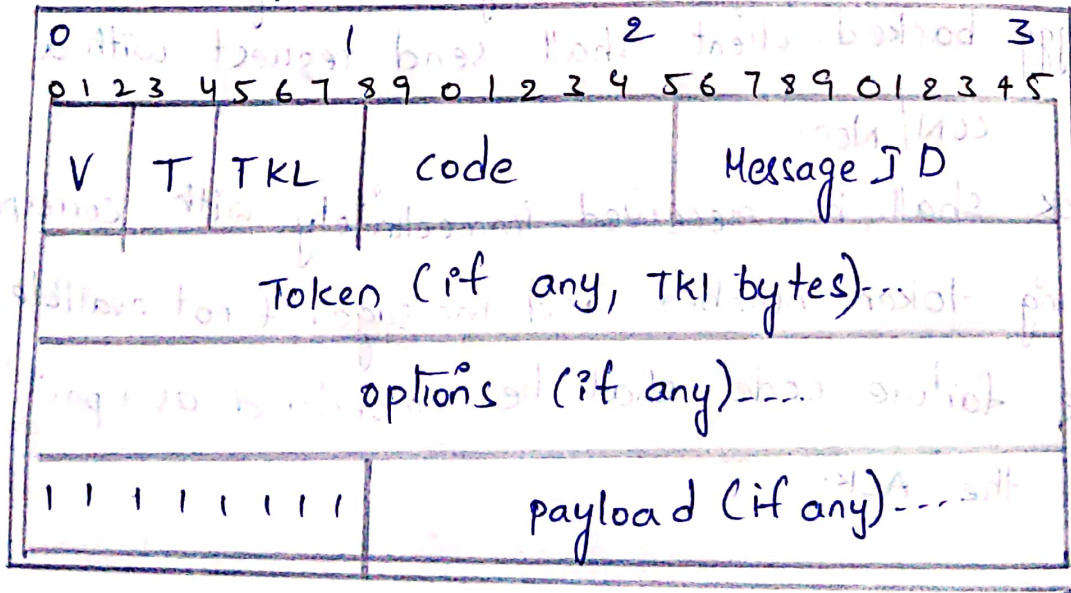 0 1 2 3
0 1 2 3 4 5 6 7 8 9 0 1 2 3 4 5 6 7 8 9 0 1 2 3 4 5
V T TKL code Message ID
Token (if any, TKl bytes)---
options (if any)----
1 1 1 1 1 1 1 1 payload (if any)----